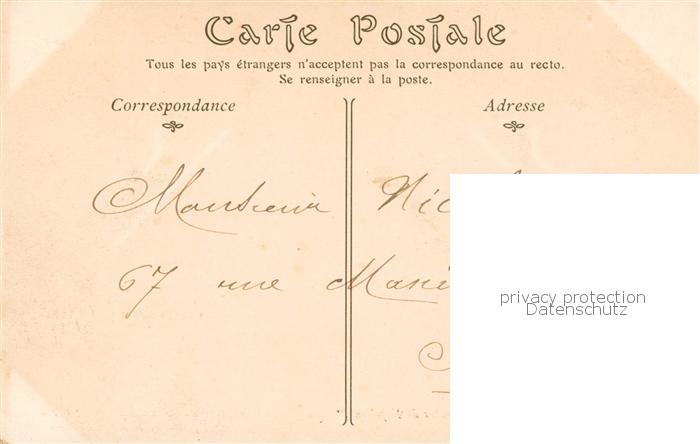 Carte Postale
Tous les pays étrangers n'acceptent pas la correspondance au recto.
Se renseigner à la poste.
Correspondance Adresse
Monsieur
67 rue
privacy protection
Datenschutz